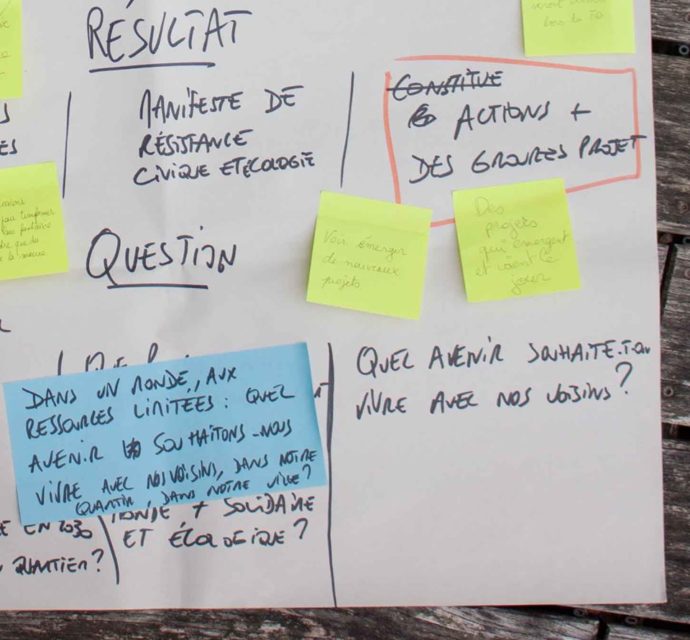 RÉSULTAT
MANIFESTE DE
RÉSISTANCE
CIVIQUE ET ECOLOGIE
CONSTITUE
ACTIONS +
DES GROUPES PROJET
QUESTION
Voir émerger
de nouveaux
projets
Des
projets
qui émergent
et vont
DANS UN MONDE, AUX
RESSOURCES LIMITEES : QUEL
AVENIR SOUHAITONS-NOUS
VIVRE AVEC NOS VOISINS, DANS NOTRE
QUARTIER, DANS NOTRE VILLE?
QUEL AVENIR SOUHAITE-T-ON
VIVRE AVEC NOS VOISINS?
EN 2030
QUARTIER?
MONDE + SOLIDAIRE
ET ÉCOLOGIQUE?